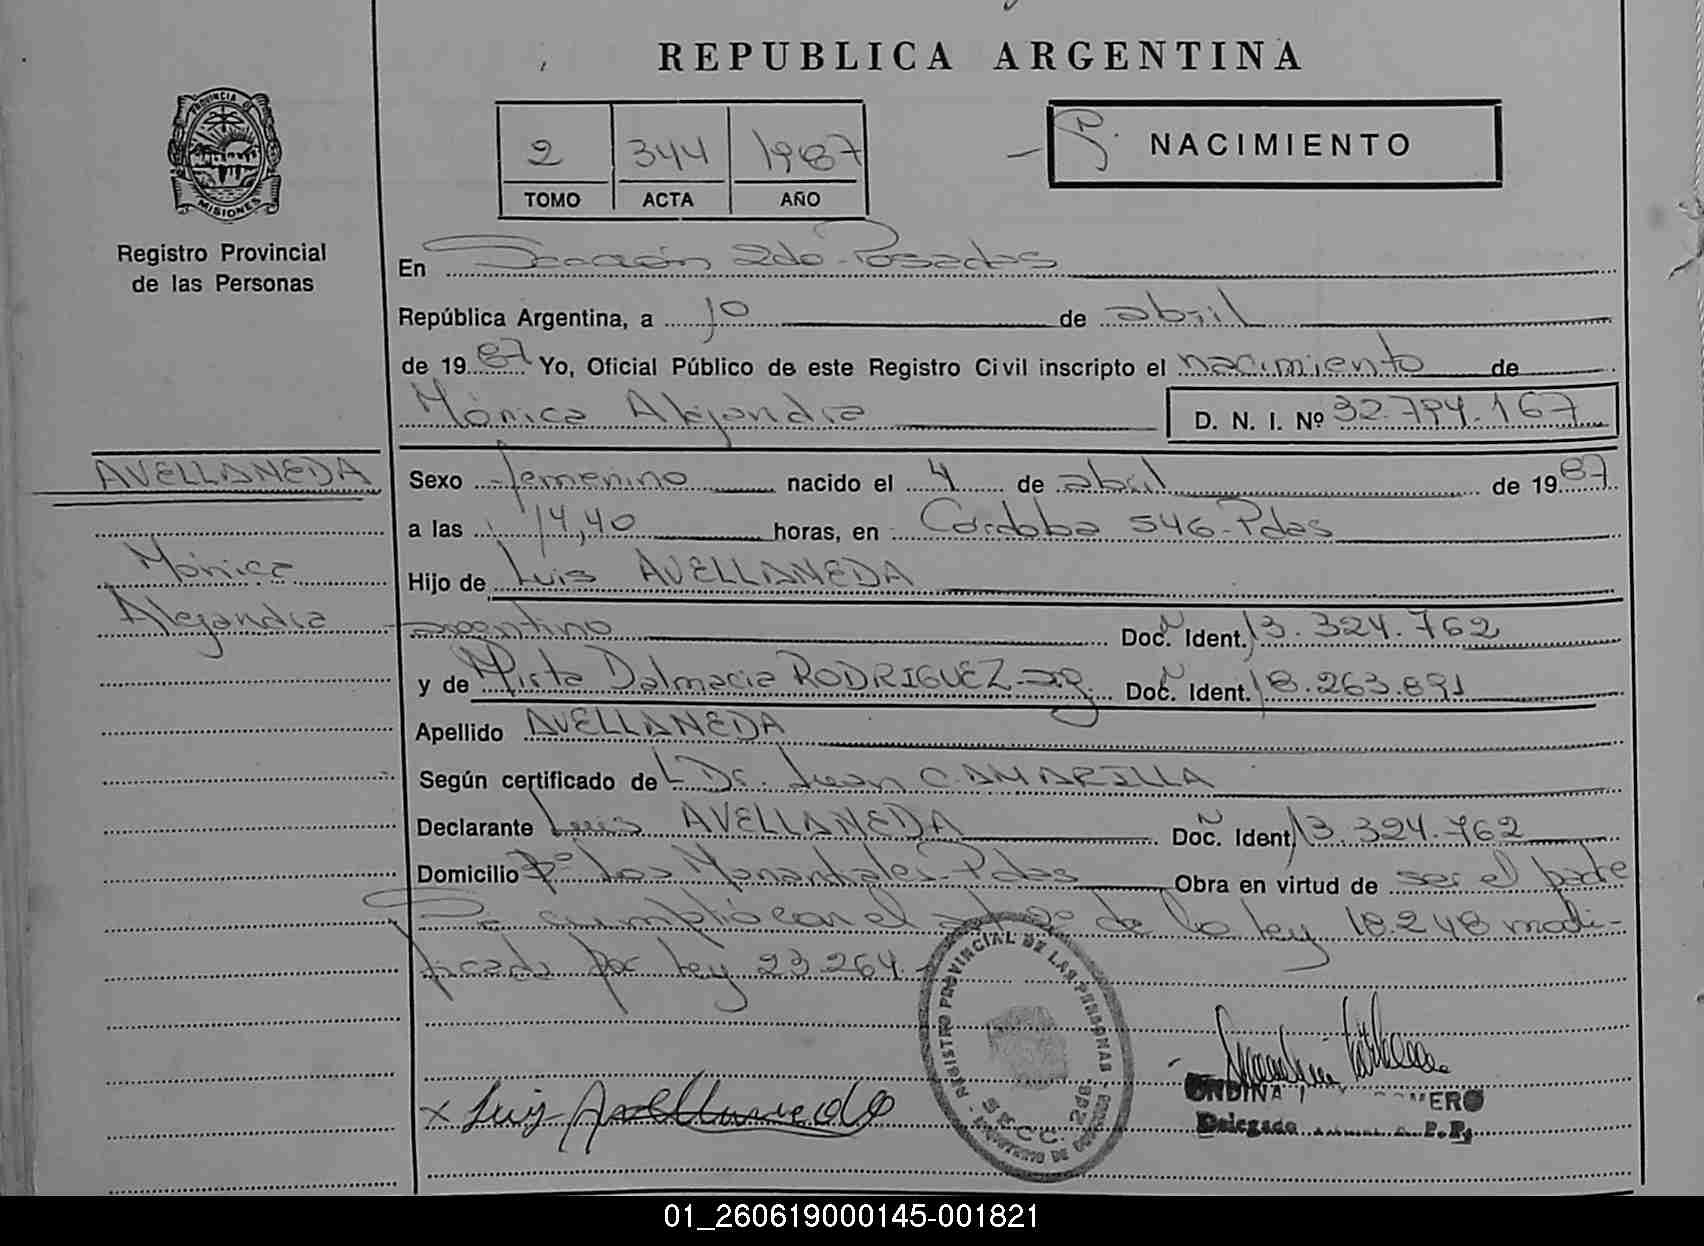 REPUBLICA ARGENTINA
PROVINCIA
MISIONES
Registro Provincial
de las Personas
2 344 1987
TOMO ACTA AÑO
NACIMIENTO
En Sección 2da Posadas
República Argentina, a 10 de abril
de 1987 Yo, Oficial Público de este Registro Civil inscripto el nacimiento de
Mónica Alejandra D. N. I. Nº 32.794.167
AVELLANEDA
Mónica
Alejandra
Sexo femenino nacido el 4 de abril de 1987
a las 14,40 horas, en Córdoba 546-Pdas
Hijo de Luis AVELLANEDA
argentino Doc. Ident. 13.324.762
y de Mirta Dalmacia RODRIGUEZ-arg Doc. Ident. 18.263.891
Apellido AVELLANEDA
Según certificado de L Dr. Juan CAMARILLA
Declarante Luis AVELLANEDA Doc. Ident 13.324.762
Domicilio Bº Los Manantiales-Pdas Obra en virtud de ser el padre
Se cumplió con el de la ley 18.248 modi-
ficada por ley 23.264.-
REGISTRO PROVINCIAL DE LAS PERSONAS
SECC. 2da.
MINISTERIO DE GOBIERNO
x Luis Avellaneda
ONDINA MERO
Delegado R.P.
01_260619000145-001821